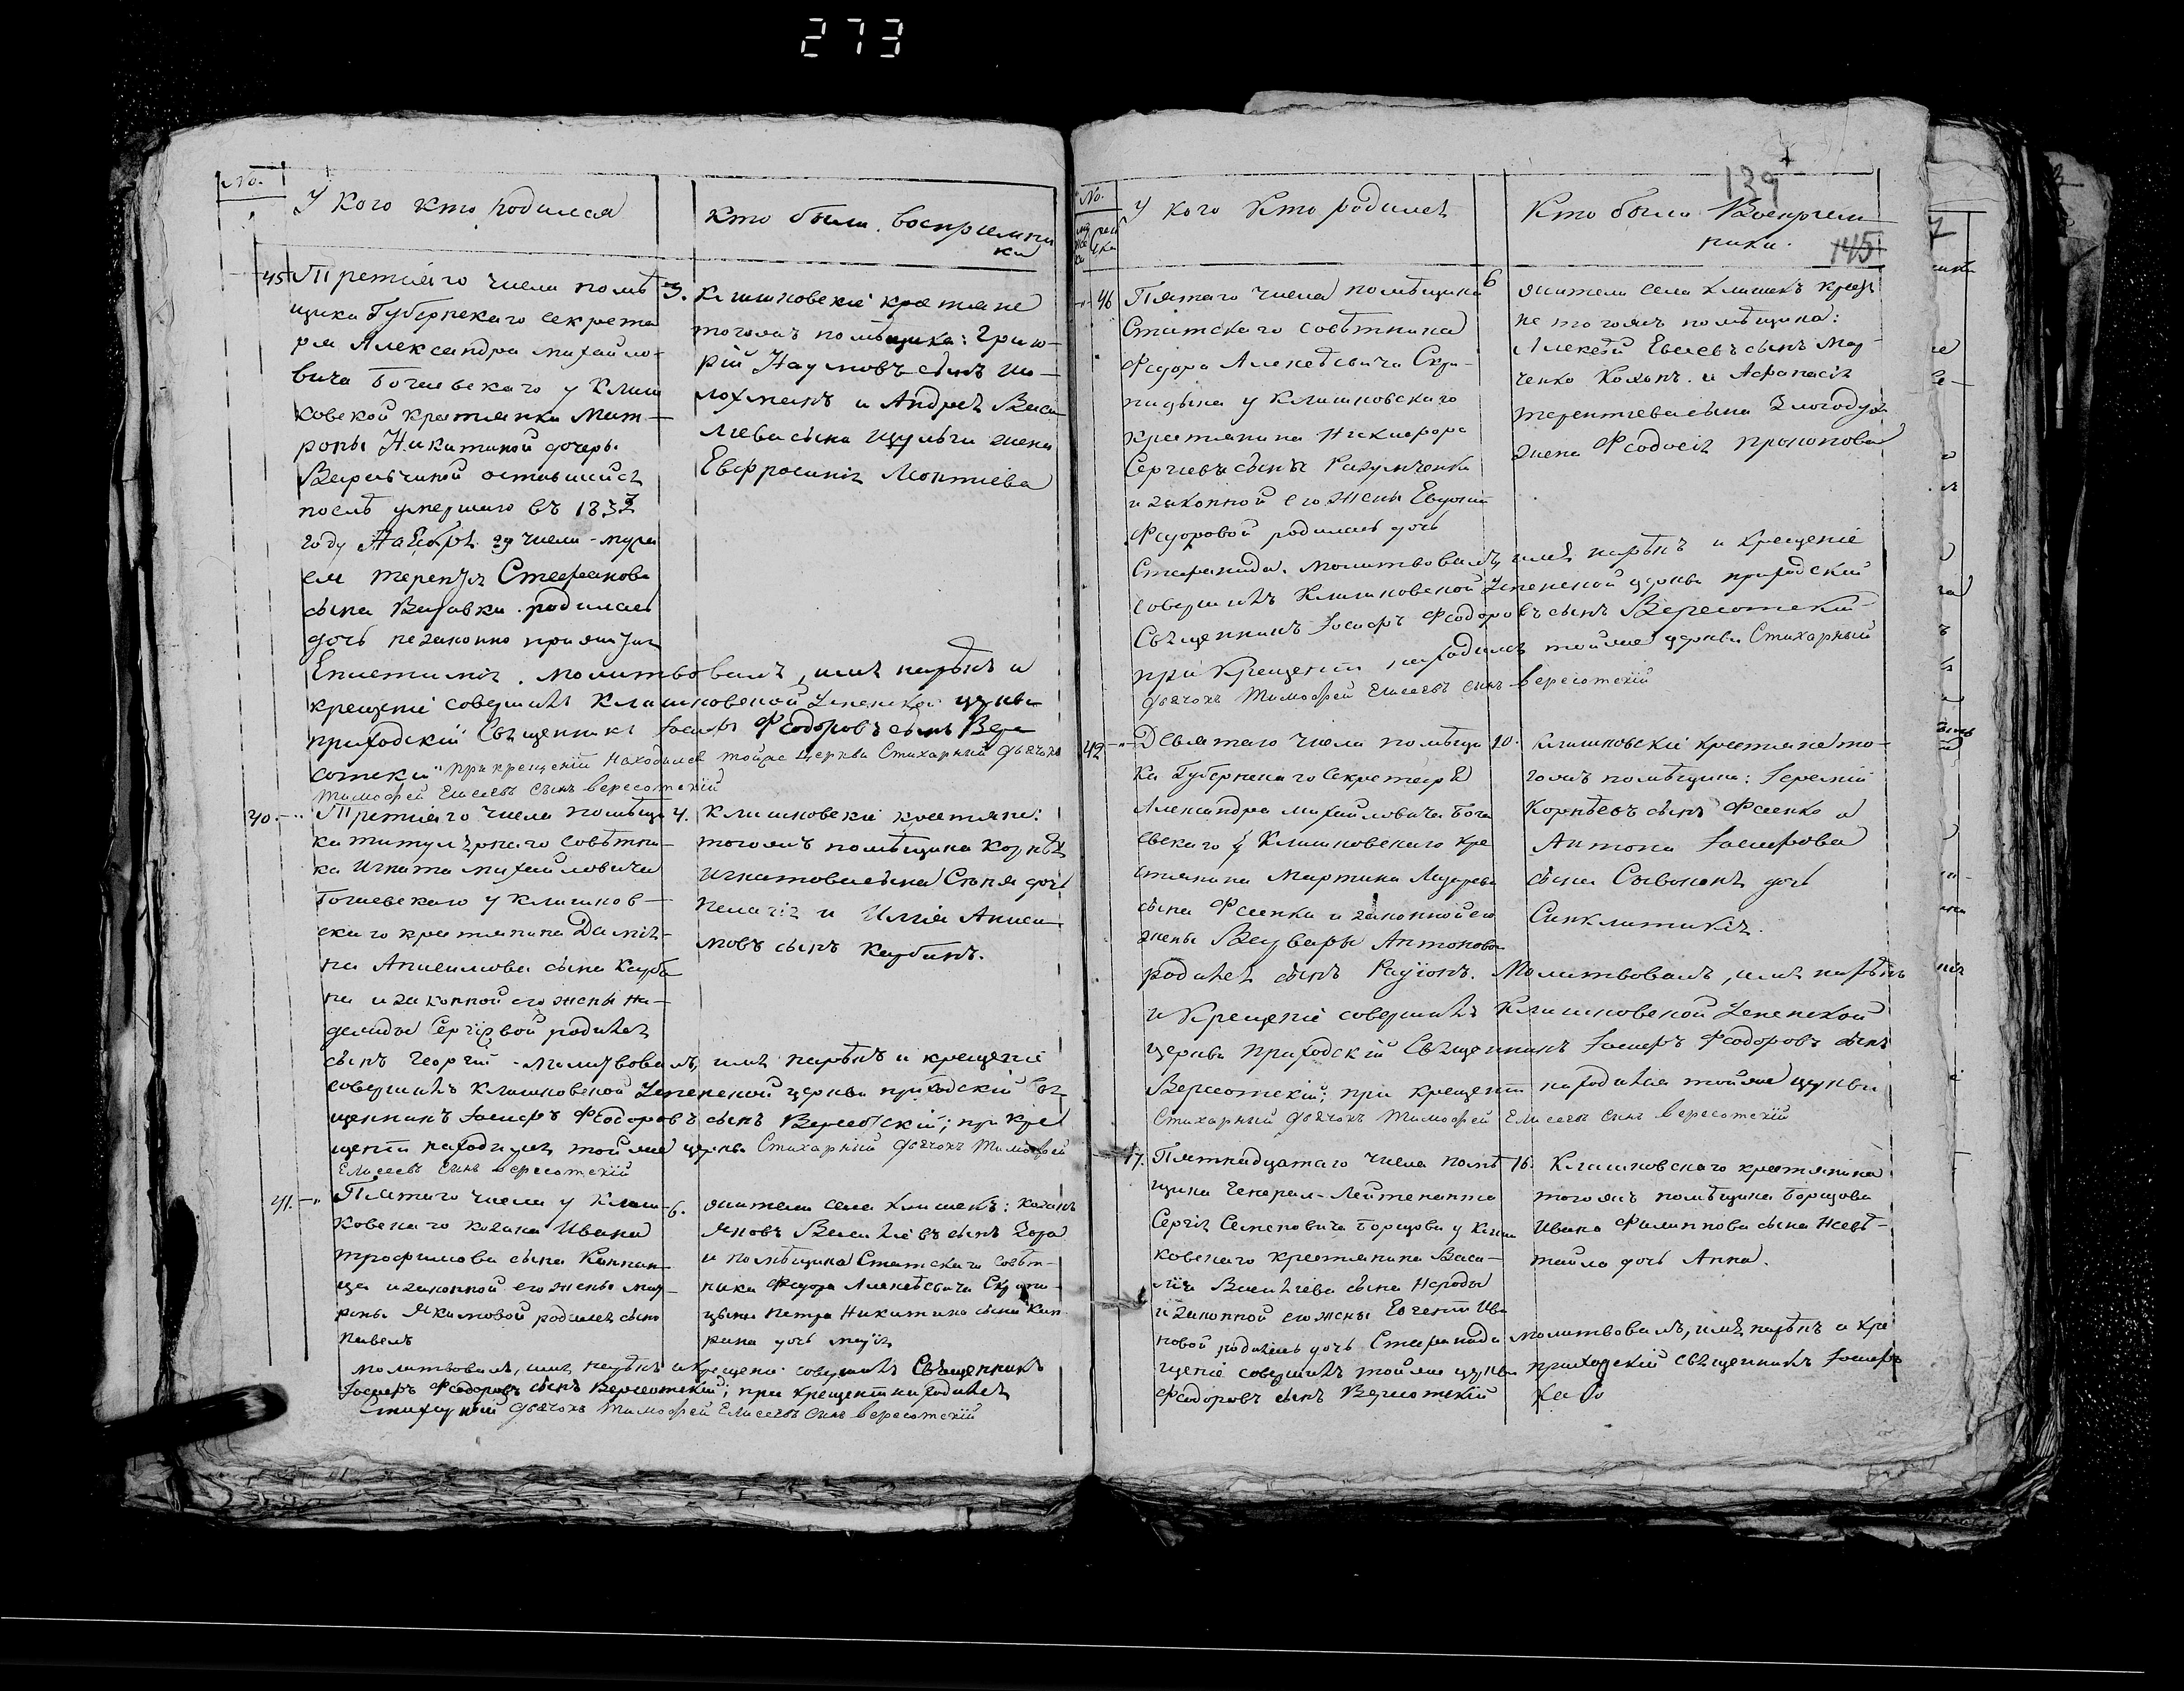 273
No.
У кого кто родился
Кто были воспріемни
ки
45
Третіяго числа помѣ
щика Губернскаго секрета
ря Александра Михайло-
вича Богаевскаго у Клиш
ковской крестянки Мат-
роны Никитиной дочери
оставшийся
послѣ умершаго въ 183
году Наебря 29 числа - мужа
ея Терентія Стефанова
сына родилась
дочь незаконно прижитая
Епистимія. молитвовалъ, имя нарѣкъ и
крещеніе совершилъ Клишковской Успенской церкви
приходскій Священникъ Іосифъ Феодоровъ сынъ Вере
сотскій при крещеніи находился тойже церкви Стихарный дьячокъ
Тимофей Елисеевъ сынъ Вересотскій
3.
Клишковскіе крестяне
тогожъ помѣщика: Григо-
рій Наумовъ сынъ Шо-
лохманъ и Андрея Васи-
лева сына жена
Евфросинія Леонтіева
40
Третіяго числа помѣщи
ка титулярнаго совѣтни-
ка Игната Михайловича
Богаевскаго у Клишков-
скаго крестянина Даміа-
на Анисимова сына Кауба
на и законной его жены На-
дежды Сергіевой родился
сынъ Георгій - молитвовалъ, имя нарѣкъ и крещеніе
совершилъ Клишковской Успенской церкви приходскій Свя
щенникъ Іосифъ Феодоровъ сынъ Вересотскій; при кре
щеніи находился тойже церкви Стихарный дьячокъ Тимофей
Елисеевъ сынъ Вересотскій
4.
Клишковскіе крестяне:
тогожъ помѣщика Корнѣя
Игнатова сына дочь
Пелагія и Илліа Аниси-
мовъ сынъ Каубанъ.
41.
Пятаго числа у Клиш-
ковскаго козака Ивана
Трофимова сына
ца и законной его жены Мат-
роны Якимовой родился сынъ
Павелъ
молитвовалъ, имя нарѣкъ и крещеніе совершилъ Священникъ
Іосифъ Феодоровъ сынъ Вересотскій; при крещеніи находился
Стихарный дьячокъ Тимофей Елисеевъ сынъ Вересотскій
6.
жители села Клишекъ: козакъ
Яковъ Василіевъ сынъ Зора
и помѣщика Статскаго Совѣт-
ника Федора Алексѣевича Скрипи-
цына Петра Никитина сына
дочь Марія
139
145
No.
У кого кто родился
Кто были Воспріем
ники.
46
Пятаго числа помѣщика
Статскаго совѣтника
Федора Алексѣевича Скри-
пицына у Клишковскаго
крестянина Никифора
Сергіева сына Разумченка
и законной его жены Евдокіи
Федоровой родилась дочь
Стефанида. молитвовалъ, имя нарѣкъ и крещеніе
совершилъ Клишковской Успенской церкви приходскій
Священникъ Іосифъ Феодоровъ сынъ Вересотскій
при крещеніи находился тойже церкви Стихарный
дьячокъ Тимофей Елисеевъ сынъ Вересотскій
6
жители села Клишекъ крестя
не тогожъ помѣщика:
Алексѣй Евсѣевъ сынъ Мар-
ченко и Афанасія
Терентіева сына
жена Феодосія Прокопова
42
Девятаго числа помѣщи
ка Губернскаго Секретаря
Александра Михайловича Бога
евскаго у Клишковскаго кре
стянина Мартина Лазарева
сына Фесенка и законной его
жены Варвары Антоновой
родился сынъ Родіонъ. Молитвовалъ, имя нарѣкъ
и Крещеніе совершилъ Клишковской Успенской
церкви приходскій Священникъ Іосифъ Феодоровъ сынъ
Вересотскій; при крещеніи находился тойже церкви
Стихарный дьячокъ Тимофей Елисеевъ сынъ Вересотскій
10.
Клишковскіе крестяне то-
гожъ помѣщика: Іеремій
Корнѣевъ сынъ Фесенко и
Антона Іосифова
сына дочь
Синклитикія.
47.
Пятнадцатаго числа помѣ
щика Генерал-Лейтенанта
Сергія Семеновича Борщова у Клиш
ковскаго крестянина Васи-
лія Василіева сына
и законной его жены Евгеніи Ива
новой родилась дочь Стефанида молитвовалъ, имя нарѣкъ и кре
щеніе совершилъ тойже церкви приходскій священникъ Іосифъ
Феодоровъ сынъ Вересотскій
16.
Клишковскаго крестянина
тогожъ помѣщика Борщова
Ивана Филиппова сына
дочь Анна.